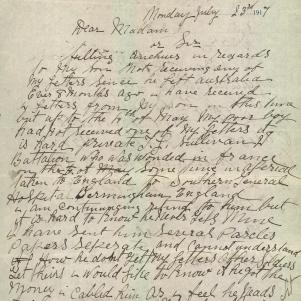 Monday July 23rd 1917
Dear Madam
or Sir
Writting Archives in regards
to My Son Not receiving any of
My Letters since he left Australia
8 Months ago I have received
Letters from My Son in this time
but up to the 10th of May My Poor boy
had not received one of My Letters it
is hard Private J. Sullivan 21
Battalion who was wounded in France
on the of May some time in
taken to England to Southern General
Hospital Birmingham England
I am Continually riting to him but
it is hard to know he never gets Mine
I have sent him Several Parcels
Papers Seperate and Cannot understand
How he dont get My Letters other Soldiers
get theirs I would like to know if he got the
Money I Cabled him as I feel he needs